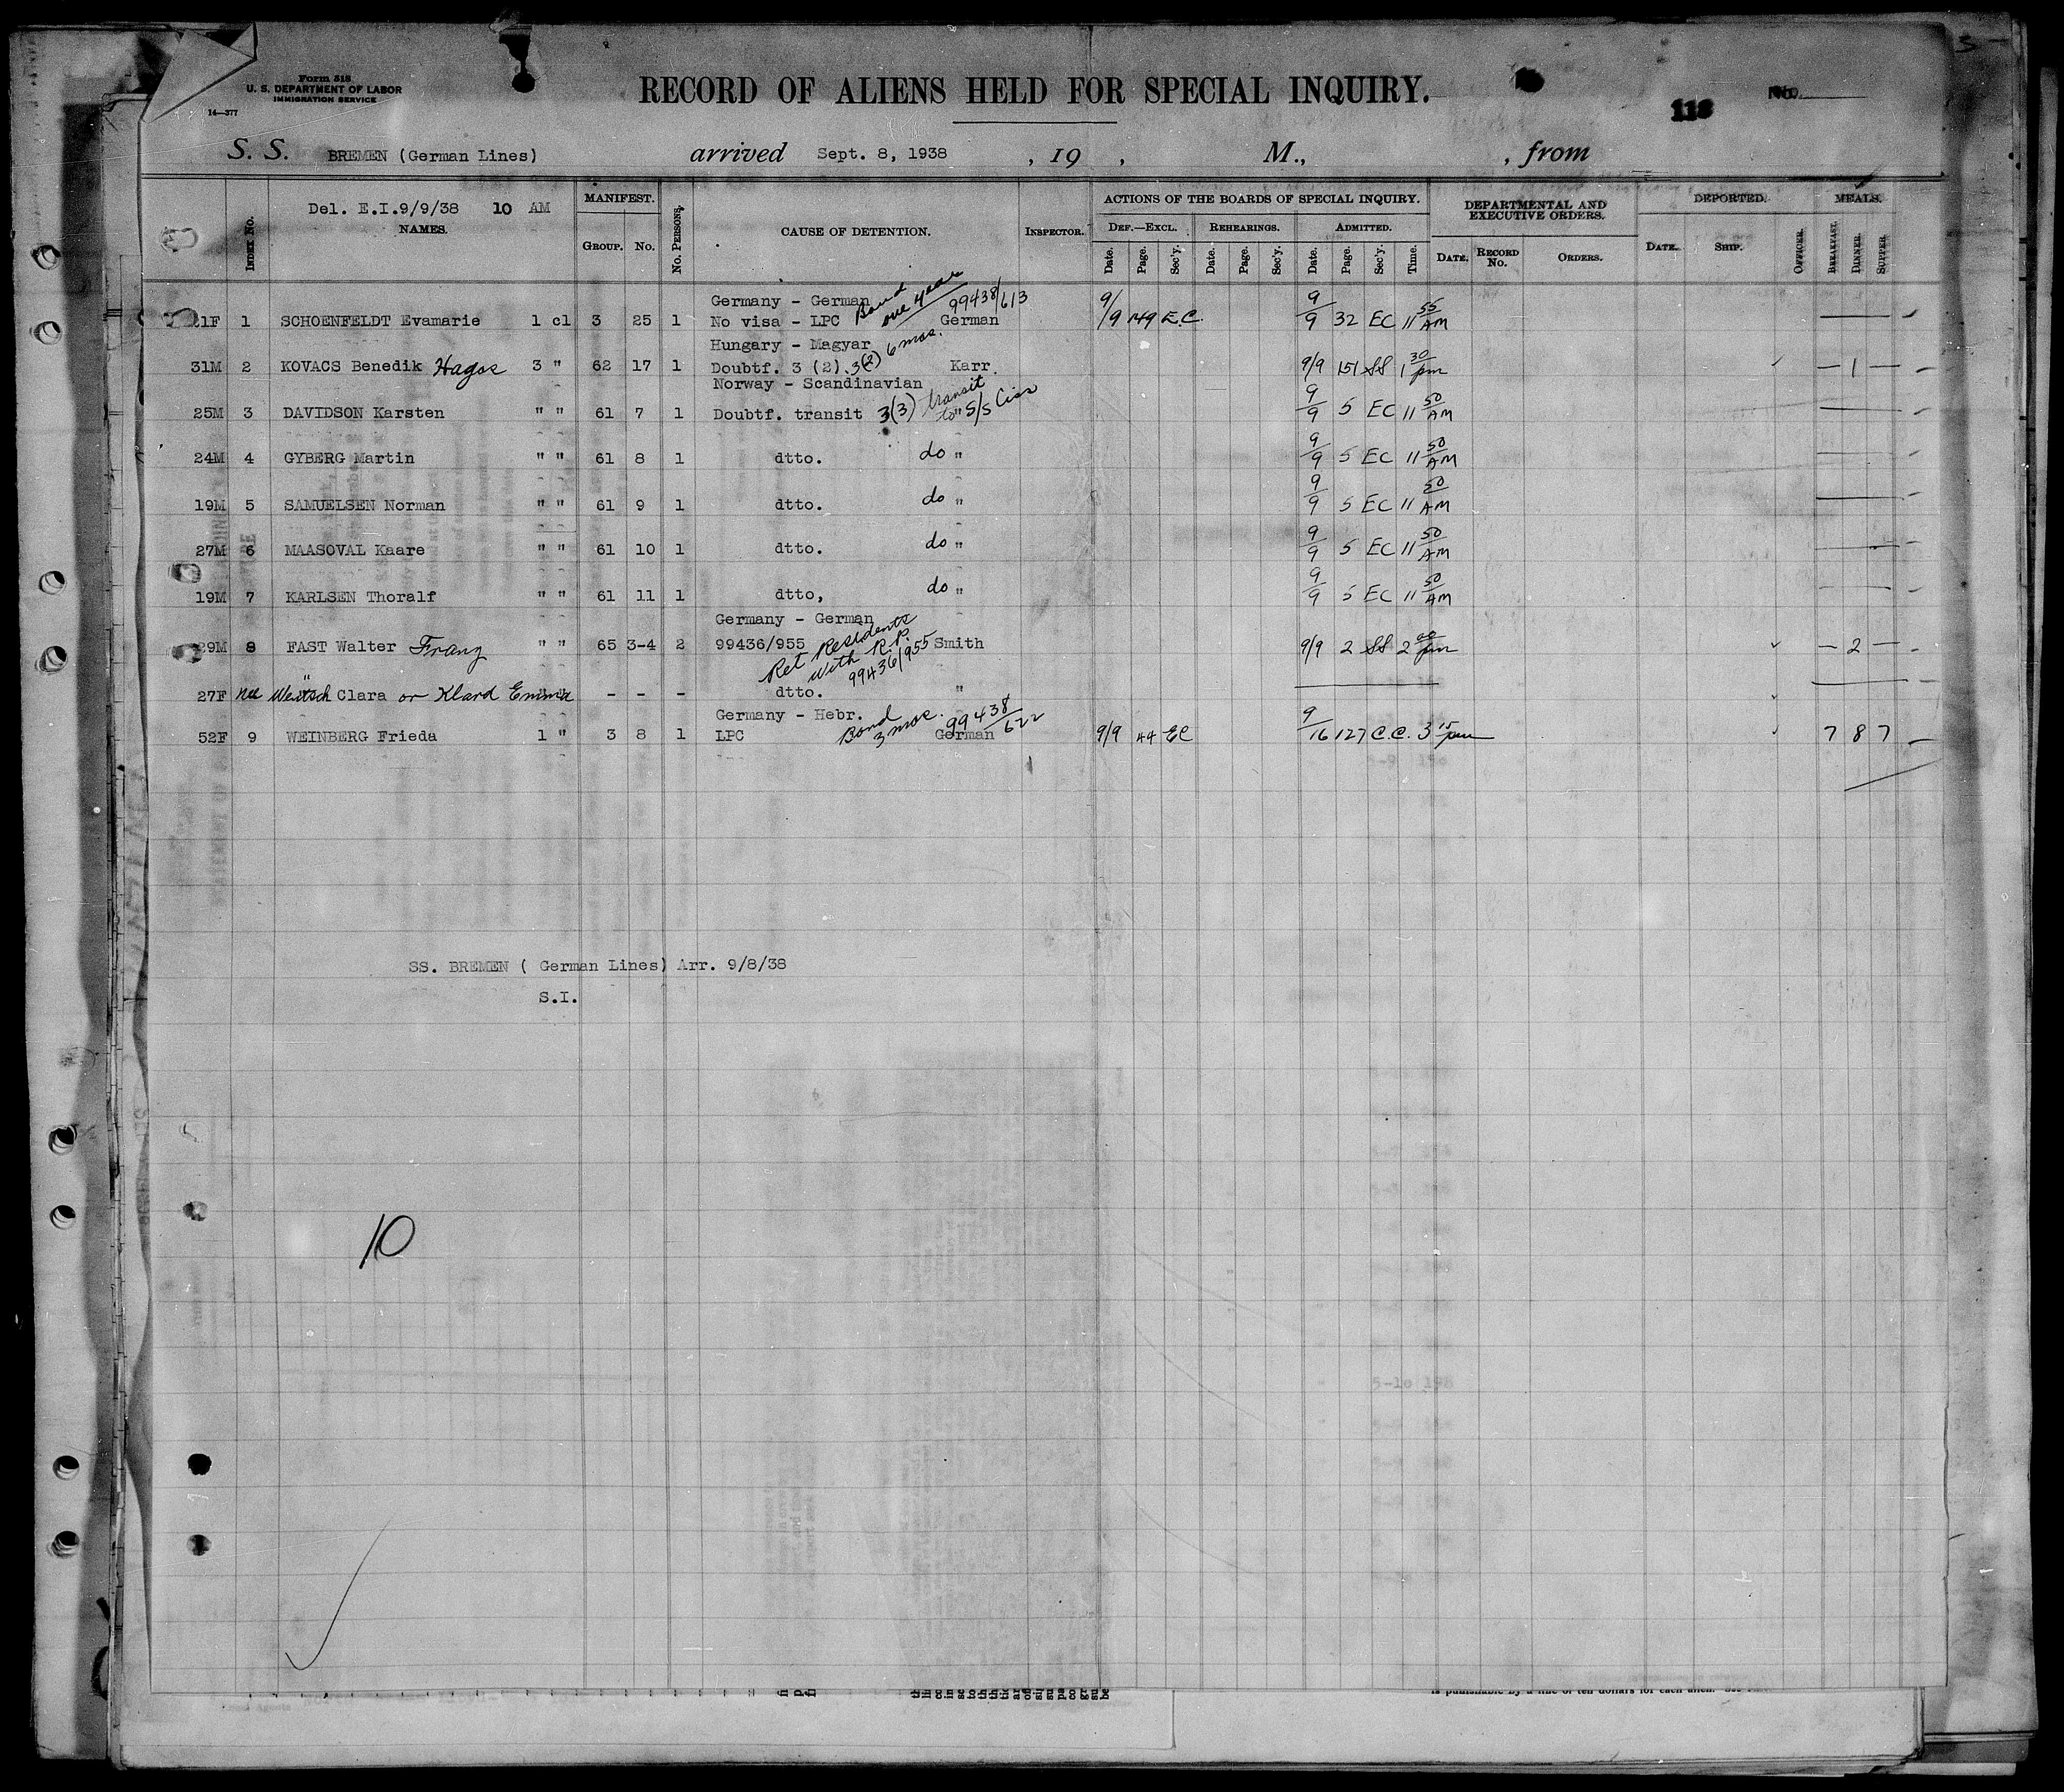 Form 518
U. S. DEPARTMENT OF LABOR
IMMIGRATION SERVICE
14—377
RECORD OF ALIENS HELD FOR SPECIAL INQUIRY.
118 No.
S. S. BREMEN (German Lines) arrived Sept. 8, 1938 , 19 , M., , from
Del. E.I.9/9/38 10 AM
INDEX No. NAMES. MANIFEST. GROUP. No. No. PERSONS. CAUSE OF DETENTION. INSPECTOR. ACTIONS OF THE BOARDS OF SPECIAL INQUIRY. DEPARTMENTAL AND EXECUTIVE ORDERS. DEPORTED. MEALS.
DEF.—EXCL. REHEARINGS. ADMITTED.
Date. Page. Sec'y. Date. Page. Sec'y. Date. Page. Sec'y. Time. DATE. RECORD No. ORDERS. DATE. SHIP. OFFICER. BREAKFAST. DINNER. SUPPER.
Germany - German Bond one year 99438/613
21F 1 SCHOENFELDT Evamarie 1 cl 3 25 1 No visa - LPC German 9/9 149 E.C. 9/9 32 EC 11 55 AM —
Hungary - Magyar 6 mos.
31M 2 KOVACS Benedik 3 " 62 17 1 Doubtf. 3 (2) 3(2) Karr. 9/9 151 SS 1 30 pm — 1 —
Norway - Scandinavian
25M 3 DAVIDSON Karsten " " 61 7 1 Doubtf. transit 3(3) transit to " S/S 9/9 5 EC 11 50 AM —
24M 4 GYBERG Martin " " 61 8 1 dtto. do " 9/9 5 EC 11 50 AM —
19M 5 SAMUELSEN Norman " " 61 9 1 dtto. do " 9/9 5 EC 11 50 AM —
27M 6 MAASOVAL Kaare " " 61 10 1 dtto. do " 9/9 5 EC 11 50 AM —
19M 7 KARLSEN Thoralf " " 61 11 1 dtto, do " 9/9 5 EC 11 50 AM —
Germany - German
29M 8 FAST Walter Franz " " 65 3-4 2 99436/955 Ret Residents with R.P. 99436/955 Smith 9/9 2 SS 2 00 pm — 2 —
27F nee Clara or Klard Emma " - - - dtto. " —
Germany - Hebr. Bond 3 mos. 99438/622
52F 9 WEINBERG Frieda 1 " 3 8 1 LPC German 9/9 44 EC 9/16 127 C.C. 3 15 pm 7 8 7
SS. BREMEN ( German Lines) Arr. 9/8/38
S.I.
10